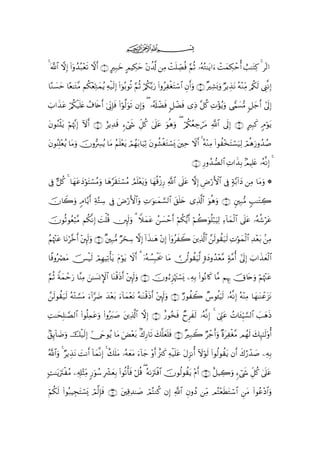 بِسْمِ ٱللَّهِ ٱلرَّحْمَٰنِ ٱلرَّحِيمِ
الٓر ۚ كِتَٰبٌ أُحْكِمَتْ ءَايَٰتُهُۥ ثُمَّ فُصِّلَتْ مِن لَّدُنْ حَكِيمٍ خَبِيرٍ ۝١ أَلَّا تَعْبُدُوٓا۟ إِلَّا ٱللَّهَ ۚ
إِنَّنِى لَكُم مِّنْهُ نَذِيرٌ وَبَشِيرٌ ۝٢ وَأَنِ ٱسْتَغْفِرُوا۟ رَبَّكُمْ ثُمَّ تُوبُوٓا۟ إِلَيْهِ يُمَتِّعْكُم مَّتَٰعًا حَسَنًا
إِلَىٰٓ أَجَلٍ مُّسَمًّى وَيُؤْتِ كُلَّ ذِى فَضْلٍ فَضْلَهُۥ ۖ وَإِن تَوَلَّوْا۟ فَإِنِّىٓ أَخَافُ عَلَيْكُمْ عَذَابَ
يَوْمٍ كَبِيرٍ ۝٣ إِلَى ٱللَّهِ مَرْجِعُكُمْ ۖ وَهُوَ عَلَىٰ كُلِّ شَىْءٍ قَدِيرٌ ۝٤ أَلَآ إِنَّهُمْ يَثْنُونَ
صُدُورَهُمْ لِيَسْتَخْفُوا۟ مِنْهُ ۚ أَلَا حِينَ يَسْتَغْشُونَ ثِيَابَهُمْ يَعْلَمُ مَا يُسِرُّونَ وَمَا يُعْلِنُونَ
ۚ إِنَّهُۥ عَلِيمٌۢ بِذَاتِ ٱلصُّدُورِ ۝٥
۞ وَمَا مِن دَآبَّةٍ فِى ٱلْأَرْضِ إِلَّا عَلَى ٱللَّهِ رِزْقُهَا وَيَعْلَمُ مُسْتَقَرَّهَا وَمُسْتَوْدَعَهَا ۚ كُلٌّ فِى
كِتَٰبٍ مُّبِينٍ ۝٦ وَهُوَ ٱلَّذِى خَلَقَ ٱلسَّمَٰوَٰتِ وَٱلْأَرْضَ فِى سِتَّةِ أَيَّامٍ وَكَانَ
عَرْشُهُۥ عَلَى ٱلْمَآءِ لِيَبْلُوَكُمْ أَيُّكُمْ أَحْسَنُ عَمَلًا ۗ وَلَئِن قُلْتَ إِنَّكُم مَّبْعُوثُونَ
مِنۢ بَعْدِ ٱلْمَوْتِ لَيَقُولَنَّ ٱلَّذِينَ كَفَرُوٓا۟ إِنْ هَٰذَآ إِلَّا سِحْرٌ مُّبِينٌ ۝٧ وَلَئِنْ أَخَّرْنَا عَنْهُمُ
ٱلْعَذَابَ إِلَىٰٓ أُمَّةٍ مَّعْدُودَةٍ لَّيَقُولُنَّ مَا يَحْبِسُهُۥٓ ۗ أَلَا يَوْمَ يَأْتِيهِمْ لَيْسَ مَصْرُوفًا
عَنْهُمْ وَحَاقَ بِهِم مَّا كَانُوا۟ بِهِۦ يَسْتَهْزِءُونَ ۝٨ وَلَئِنْ أَذَقْنَا ٱلْإِنسَٰنَ مِنَّا رَحْمَةً ثُمَّ
نَزَعْنَٰهَا مِنْهُ إِنَّهُۥ لَيَـُٔوسٌ كَفُورٌ ۝٩ وَلَئِنْ أَذَقْنَٰهُ نَعْمَآءَ بَعْدَ ضَرَّآءَ مَسَّتْهُ لَيَقُولَنَّ
ذَهَبَ ٱلسَّيِّـَٔاتُ عَنِّىٓ ۚ إِنَّهُۥ لَفَرِحٌ فَخُورٌ ۝١٠ إِلَّا ٱلَّذِينَ صَبَرُوا۟ وَعَمِلُوا۟ ٱلصَّٰلِحَٰتِ
أُو۟لَٰٓئِكَ لَهُم مَّغْفِرَةٌ وَأَجْرٌ كَبِيرٌ ۝١١ فَلَعَلَّكَ تَارِكٌۢ بَعْضَ مَا يُوحَىٰٓ إِلَيْكَ وَضَآئِقٌۢ
بِهِۦ صَدْرُكَ أَن يَقُولُوا۟ لَوْلَآ أُنزِلَ عَلَيْهِ كَنزٌ أَوْ جَآءَ مَعَهُۥ مَلَكٌ ۚ إِنَّمَآ أَنتَ نَذِيرٌ ۚ وَٱللَّهُ
عَلَىٰ كُلِّ شَىْءٍ وَكِيلٌ ۝١٢ أَمْ يَقُولُونَ ٱفْتَرَىٰهُ ۖ قُلْ فَأْتُوا۟ بِعَشْرِ سُوَرٍ مِّثْلِهِۦ مُفْتَرَيَٰتٍ
وَٱدْعُوا۟ مَنِ ٱسْتَطَعْتُم مِّن دُونِ ٱللَّهِ إِن كُنتُمْ صَٰدِقِينَ ۝١٣ فَإِلَّمْ يَسْتَجِيبُوا۟ لَكُمْ